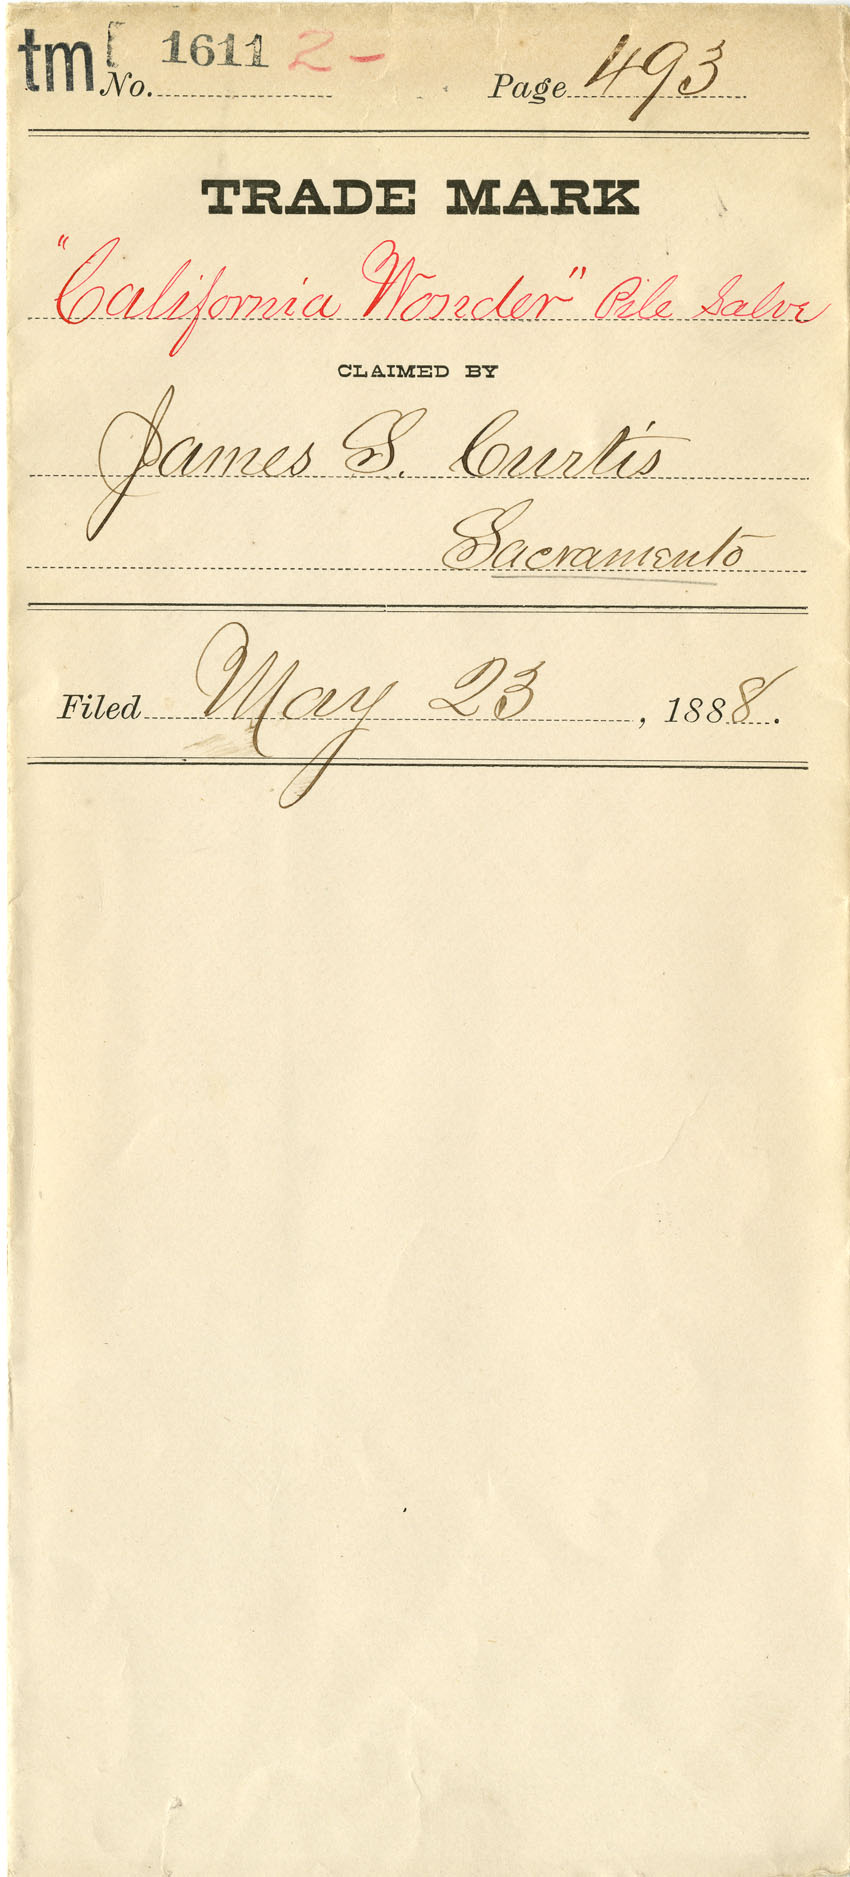 tm No. 1611 2- Page 493
TRADE MARK
"California Wonder" Pile Salve
CLAIMED BY
James S. Curtis
Sacramento
Filed May 23, 1888.